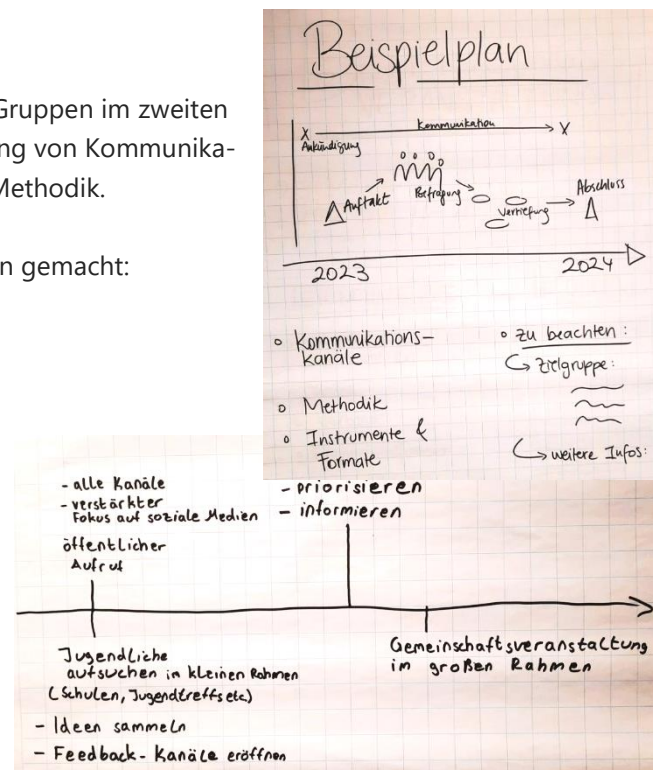 Gruppen im zweiten
ng von Kommunika-
Methodik.
n gemacht:
Beispielplan
X Kommunikation X
Ankündigung
Auftakt
Befragung
Vertiefung
Abschluss
2023 2024
Kommunikations-
kanäle
Methodik
Instrumente &
Formate
zu beachten :
Zielgruppe:
weitere Infos:
- alle Kanäle
- verstärkter
Fokus auf soziale Medien
öffentlicher
Aufruf
- priorisieren
- informieren
Jugendliche
aufsuchen in kleinen Rahmen
(Schulen, Jugendtreffs etc)
- Ideen sammeln
- Feedback-Kanäle eröffnen
Gemeinschaftsveranstaltung
im großen Rahmen